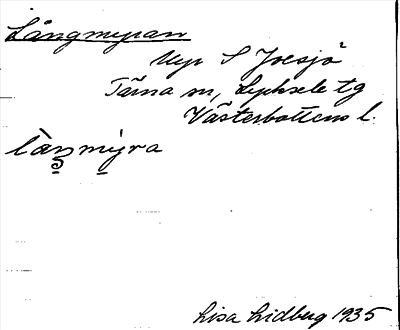 Långmyran
Myr S Joesjö
Tärna sn, Lycksele tg
Västerbottens l.
Lisa Lidberg 1935